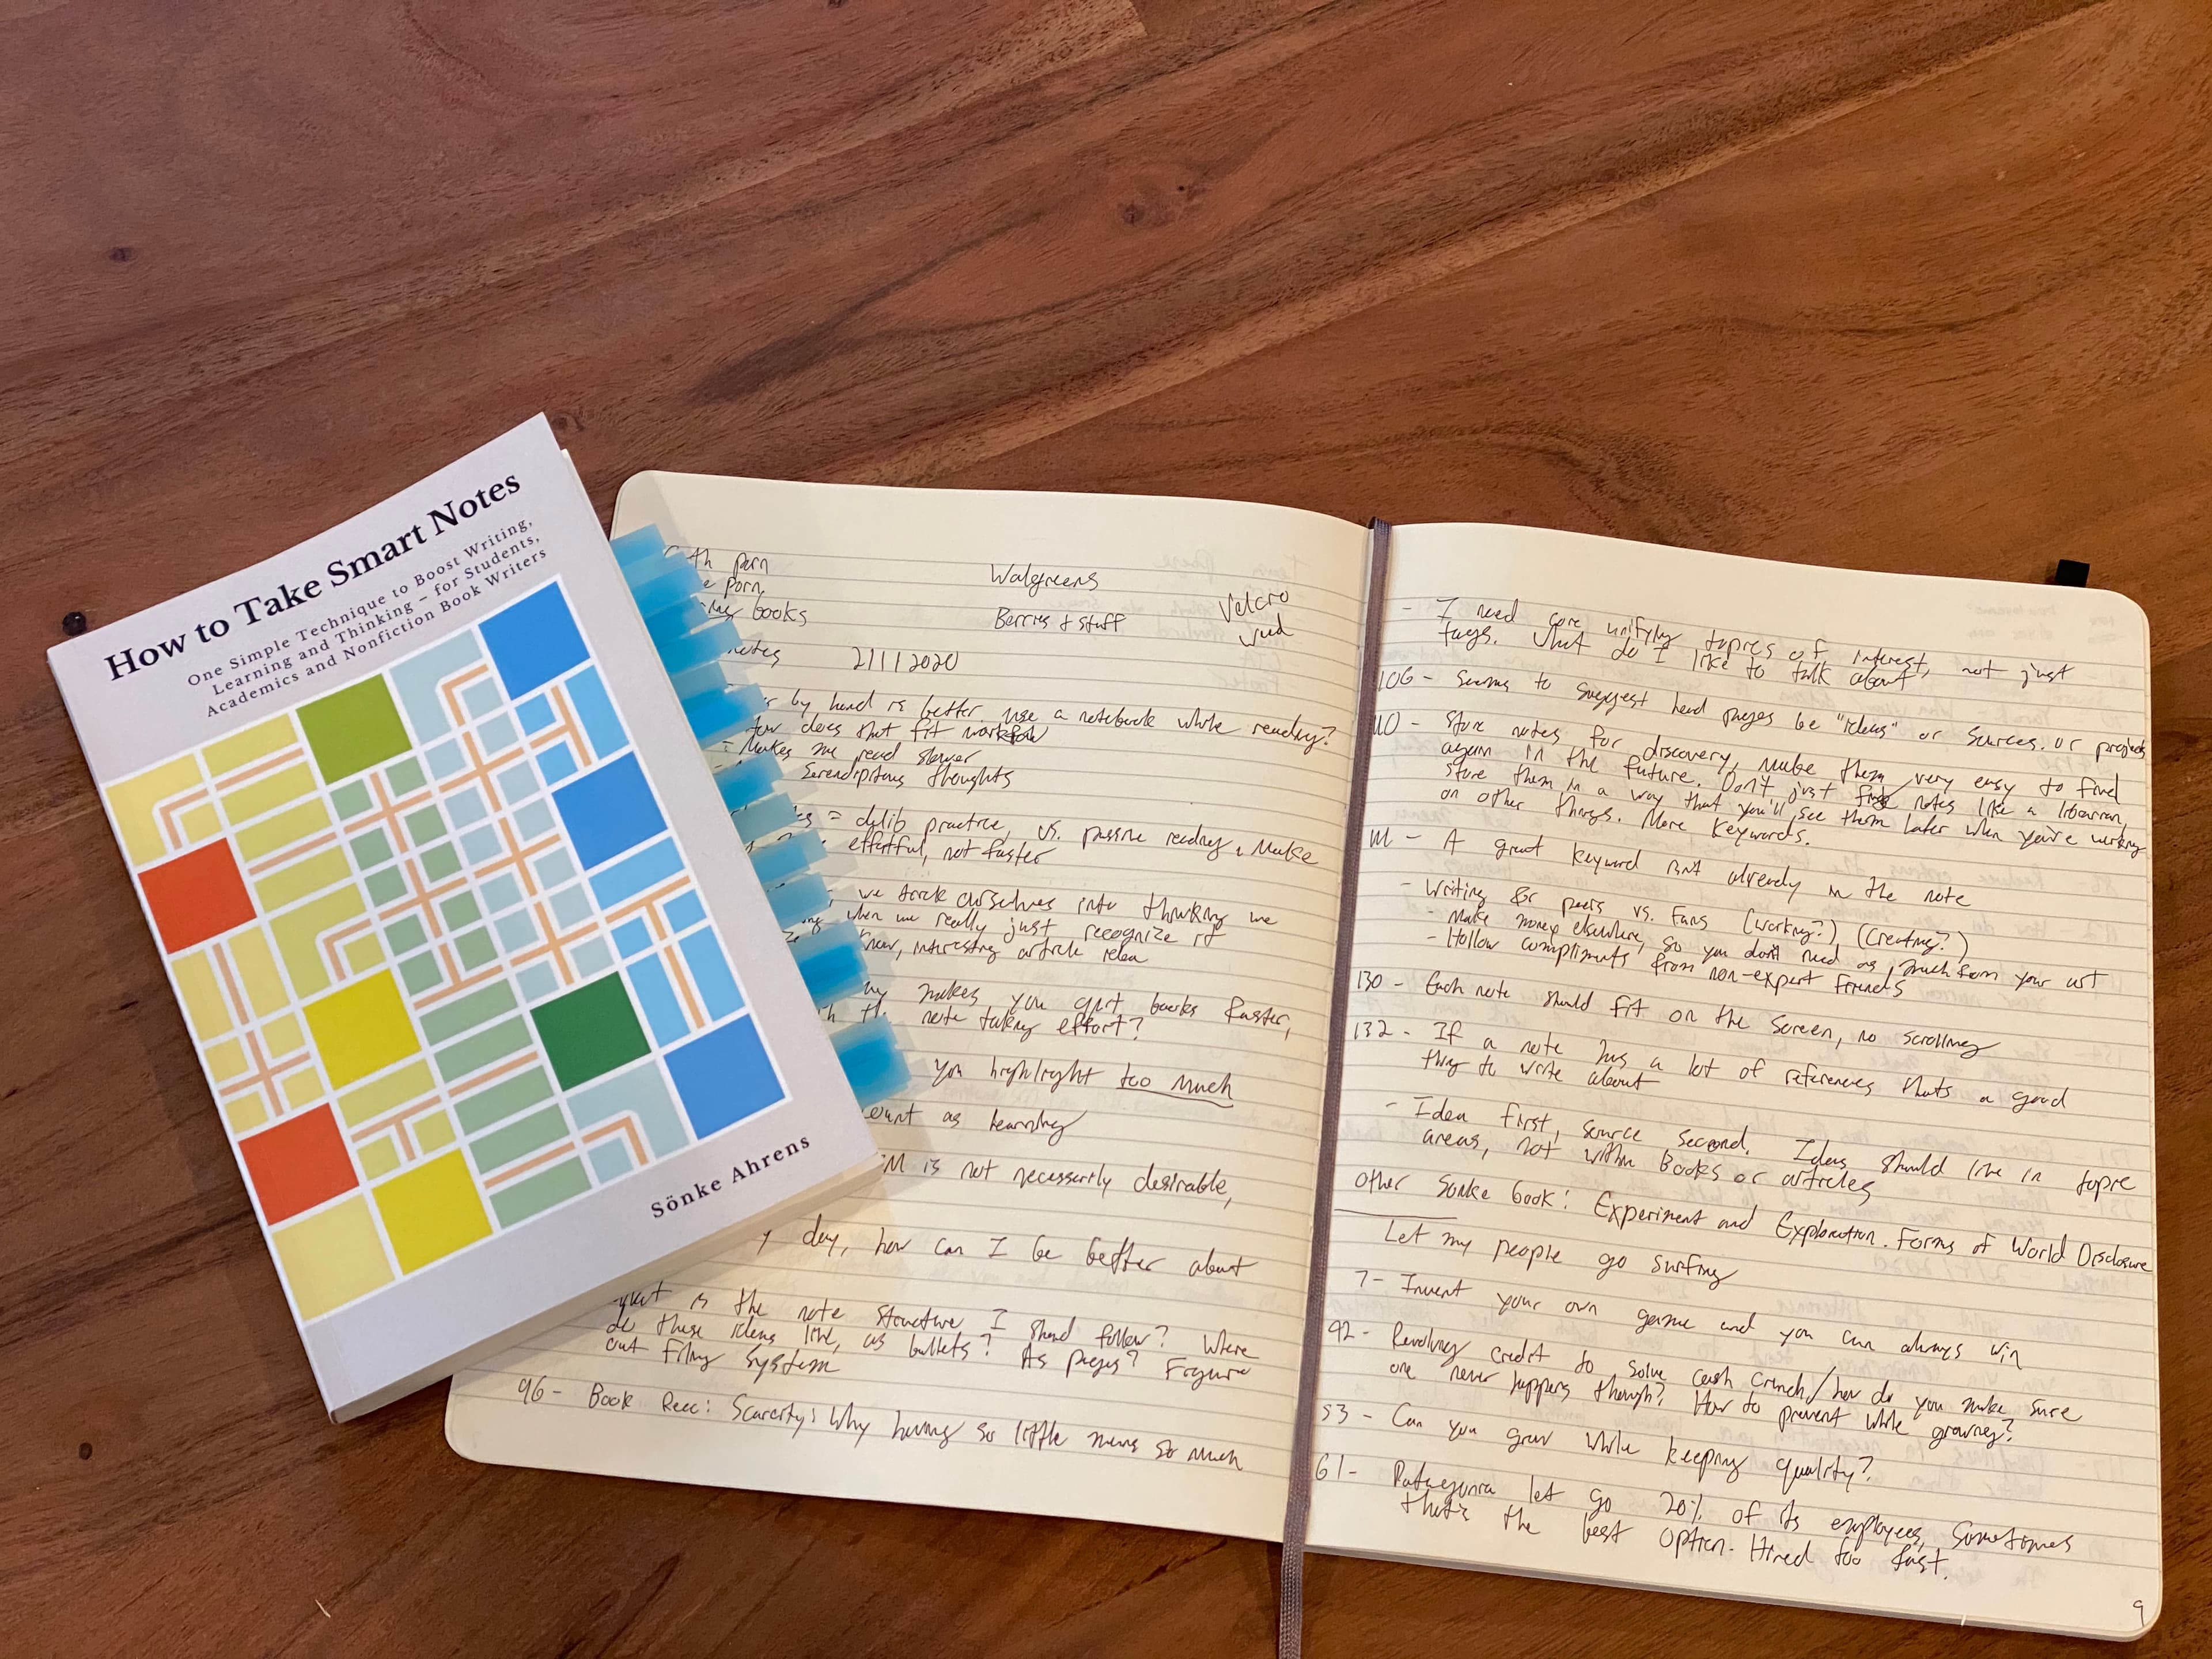 How to Take Smart Notes
One Simple Technique to Boost Writing,
Learning and Thinking – for Students,
Academics and Nonfiction Book Writers
Sönke Ahrens
Walgreens
Velcro
books
Berries + stuff
notes 2/11/2020
by hand is better, use a notebook while reading?
does that fit workflow
- Makes me read slower
Serendipitous thoughts
= delib practice, vs. passive reading. Make
effortful, not faster
we trick ourselves into thinking we
when we really just recognize it
interesting article idea
makes you quit books faster,
note taking effort?
you highlight too much
count as learning
is not necessarily desirable,
day, how can I be better about
is the note structure I should follow? Where
do these ideas live, as bullets? As pages? Figure
out filing system
96 - Book Rec: Scarcity: Why having so little means so much
- I need core unifying topics of interest, not just
tags. What do I like to talk about
106 - Seems to suggest head pages be "ideas" or sources. or projects
110 - Store notes for discovery, make them very easy to find
again in the future. Don't just notes like a librarian,
store them in a way that you'll see them later when you're working
on other things. More keywords.
111 - A great keyword isn't already in the note
- Writing for peers vs. Fans (working?) (creating?)
- Make money elsewhere, so you don't need as much from your art
- Hollow compliments from non-expert Friends
130 - Each note should fit on the screen, no scrolling
132 - If a note has a lot of references thats a good
thing to write about
- Idea first, source second. Ideas should live in topic
areas, not within Books or articles
other Sonke book: Experiment and Exploration. Forms of World Disclosure
Let my people go surfing
7 - Invent your own game and you can always win
92 - Revolving credit to solve cash crunch/how do you make sure
one never happens though? How to prevent while growing?
53 - Can you grow while keeping quality?
61 - Patagonia let go 20% of its employees, Sometimes
that's the best option. Hired too fast.
9